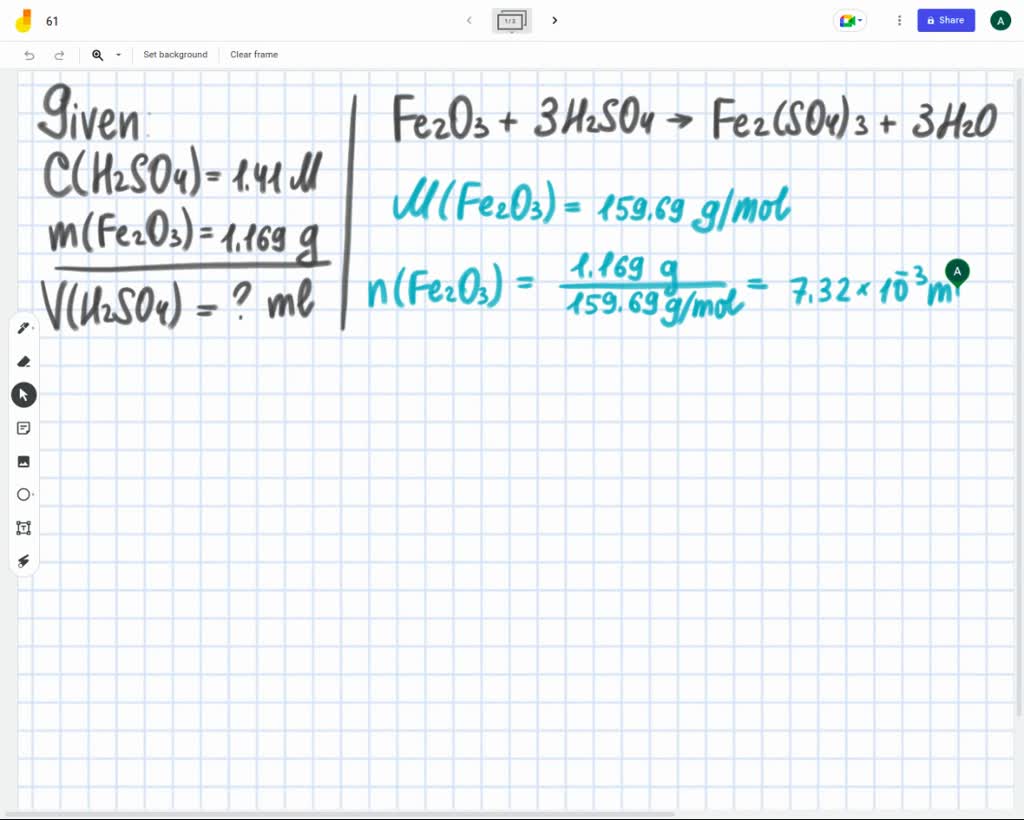 61
1/3
Share
A
Set background
Clear frame
Given:
C(H₂SO₄) = 1.41 M
m(Fe₂O₃) = 1.169 g
V(H₂SO₄) = ? ml
Fe₂O₃ + 3H₂SO₄ → Fe₂(SO₄)₃ + 3H₂O
M(Fe₂O₃) = 159.69 g/mol
n(Fe₂O₃) = 1.169 g / 159.69 g/mol = 7.32 × 10⁻³ m
A
T